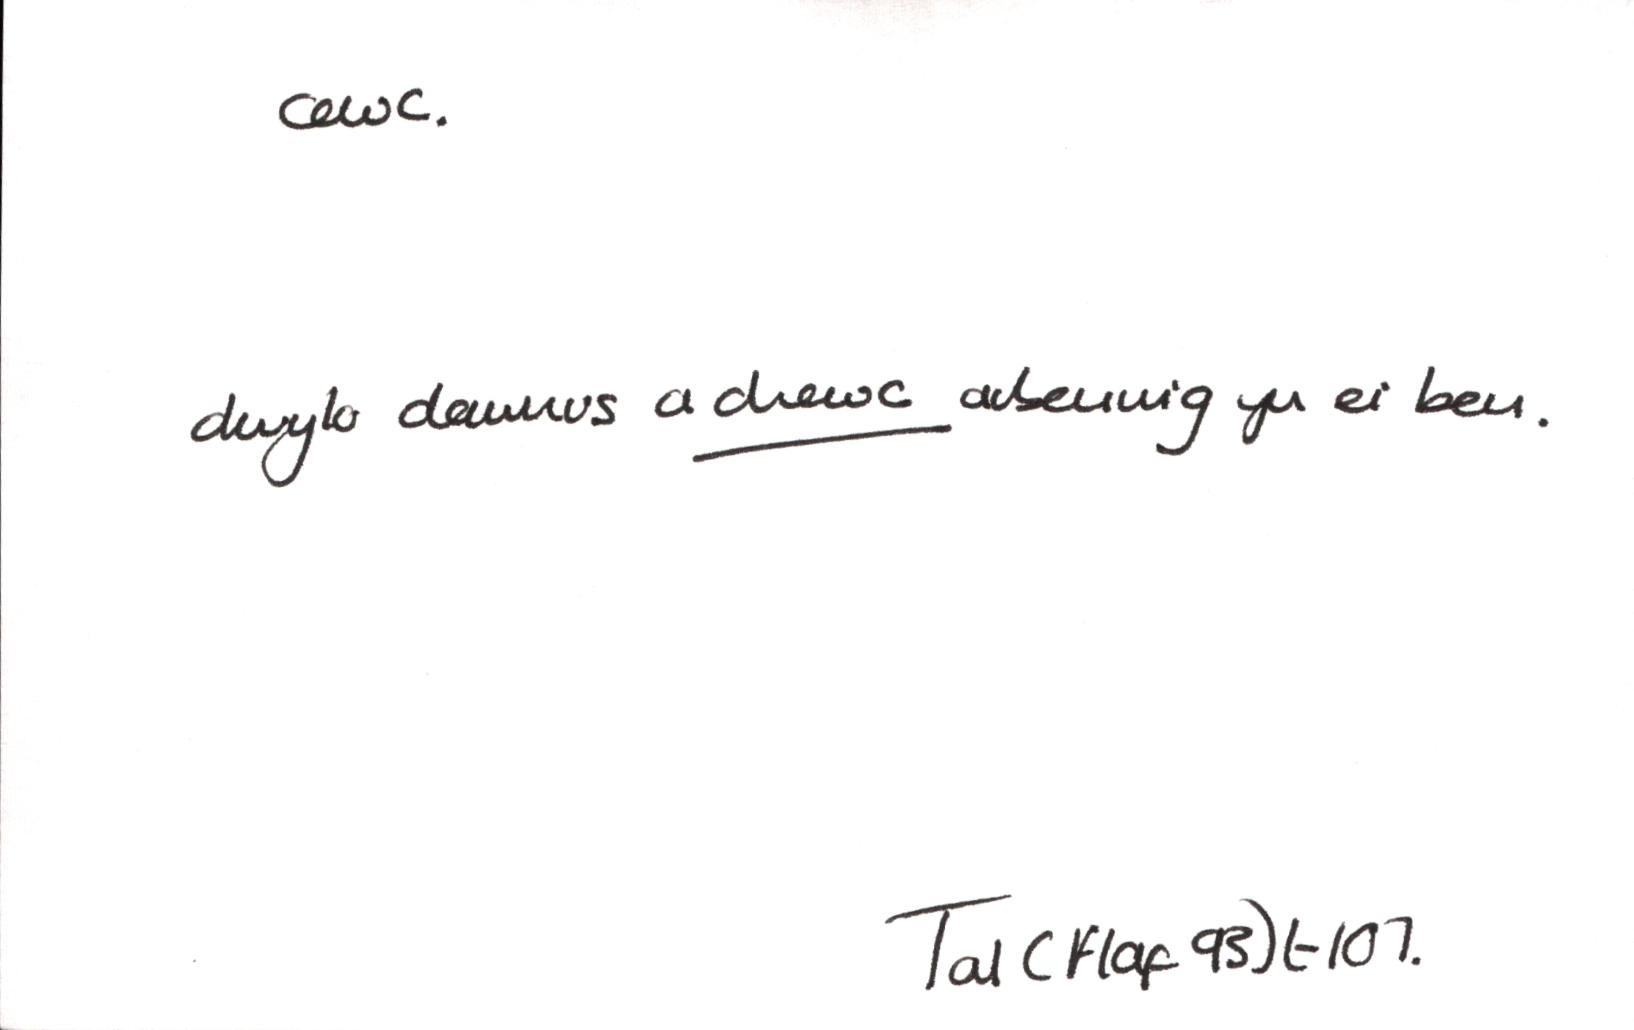 cewc.
dwylo dawnus a chewc arbennig yn ei ben.
Tal (Haf 93) t-107.